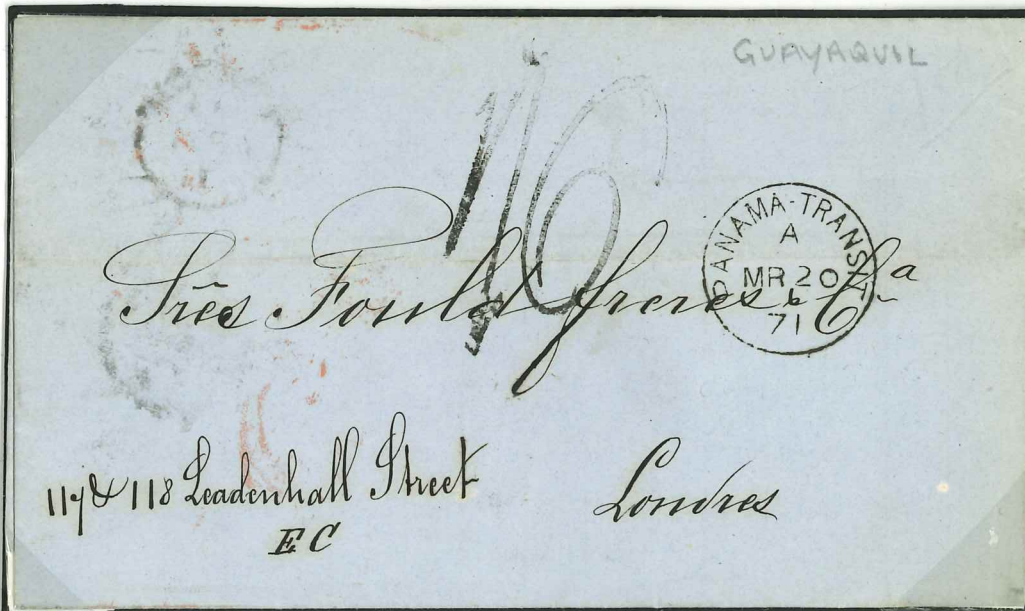 GUAYAQUIL
1/6
PANAMA-TRANSIT
A
MR 20
71
Sres Fould freres & Ca
117 & 118 Leadenhall Street
E C
Londres